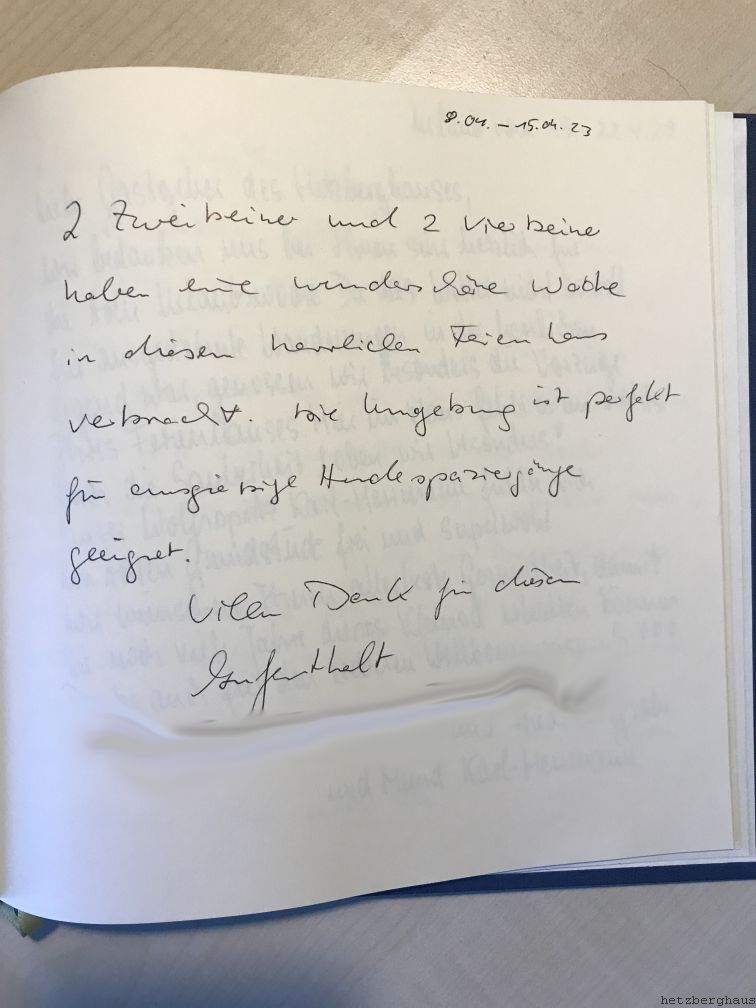 8.04. – 15.04.23
2 Zweibeiner und 2 Vierbeiner
haben eine wunderschöne Woche
in diesem herrlichen Ferienhaus
verbracht. Die Umgebung ist perfekt
für ausgiebige Hundespaziergänge
geeignet.
Vielen Dank für diesen
Aufenthalt
hetzberghaus